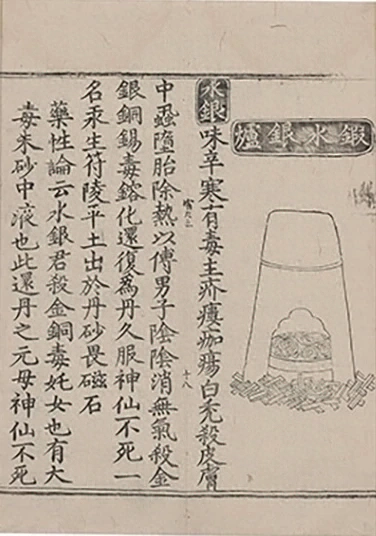 煅水銀爐
水銀
味辛寒有毒主疥瘻痂瘍白禿殺皮膚
中蝨墮胎除熱以傅男子陰陰消無氣殺金
銀銅錫毒鎔化還復爲丹久服神仙不死一
名汞生符陵平土出於丹砂畏磁石
藥性論云水銀君殺金銅毒姹女也有大
毒朱砂中液也此還丹之元母神仙不死
十八